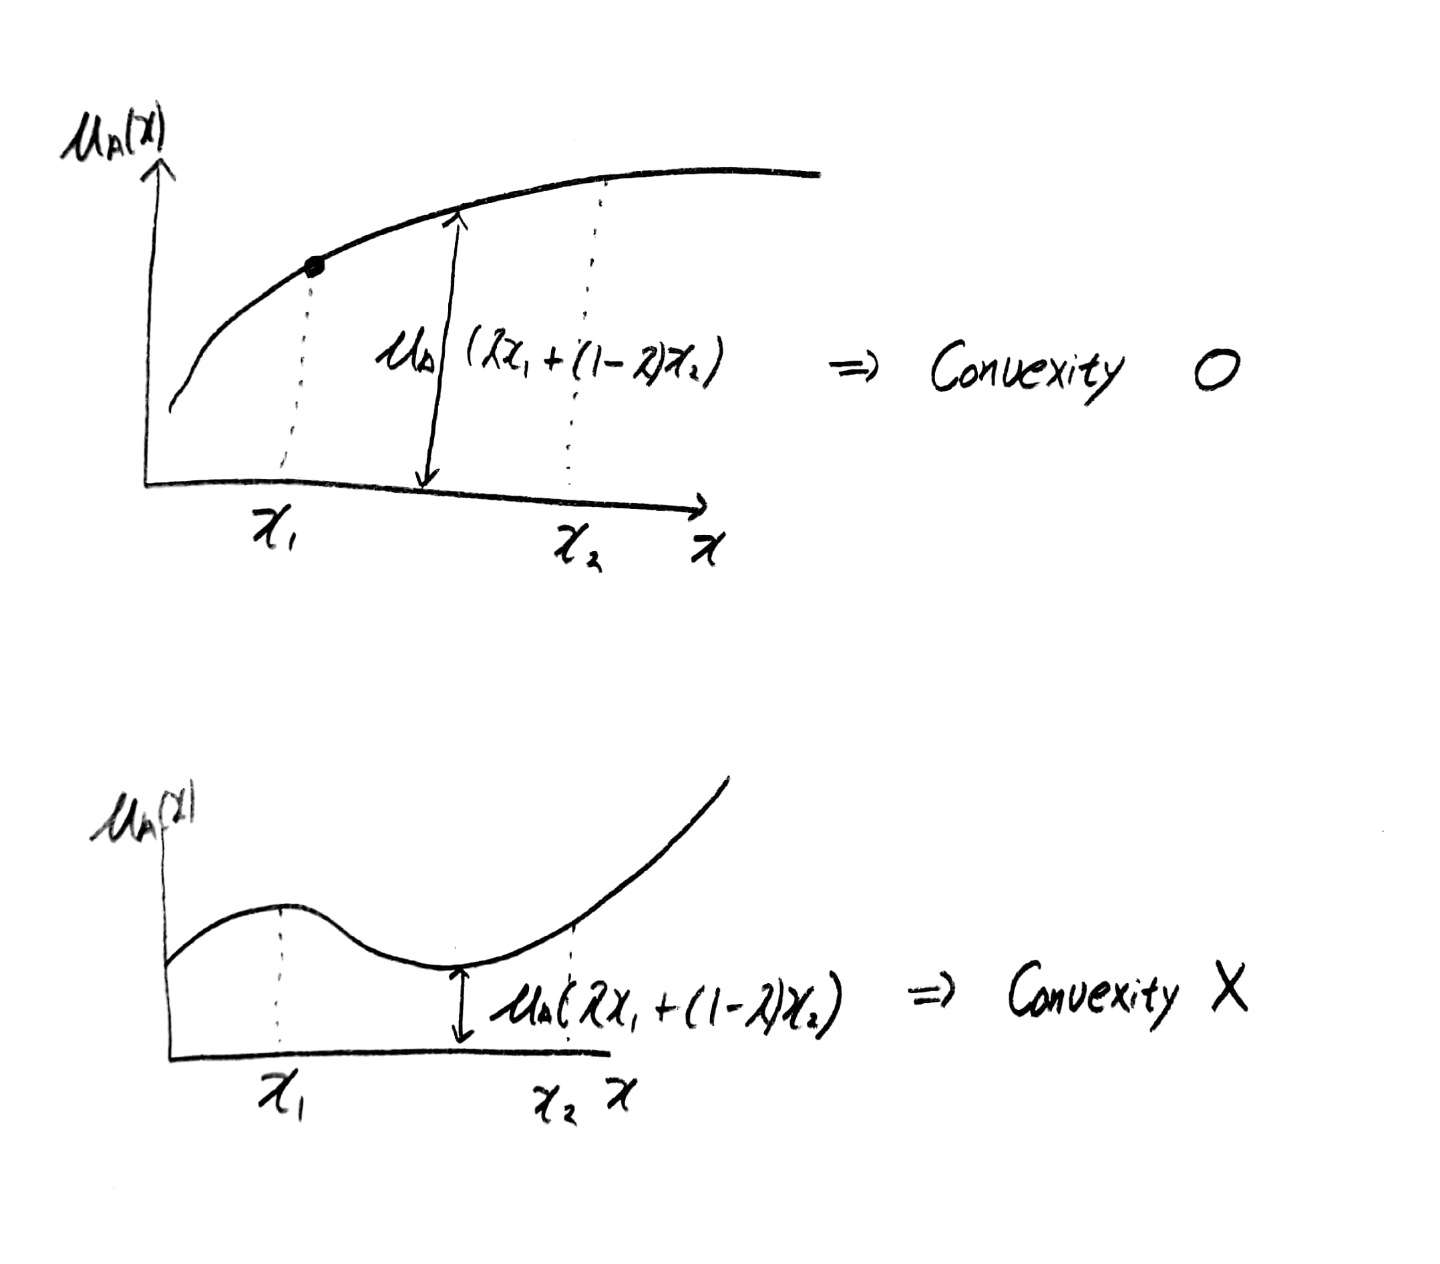 μA(x)
μA (λx₁ + (1-λ)x₂) ⇒ Convexity O
x₁ x₂ x
μA(x)
μA(λx₁ + (1-λ)x₂) ⇒ Convexity X
x₁ x₂ x